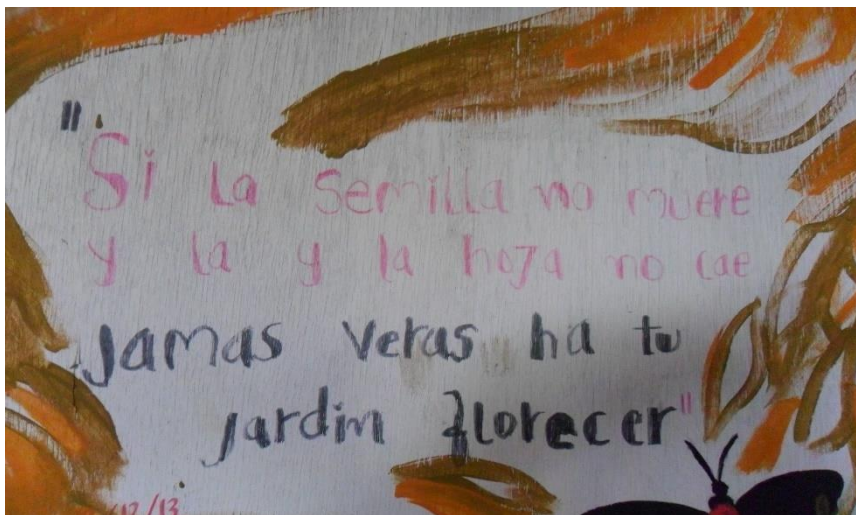 "Si la semilla no muere
y la y la hoja no cae
Jamas veras ha tu
jardin florecer"
/12/13